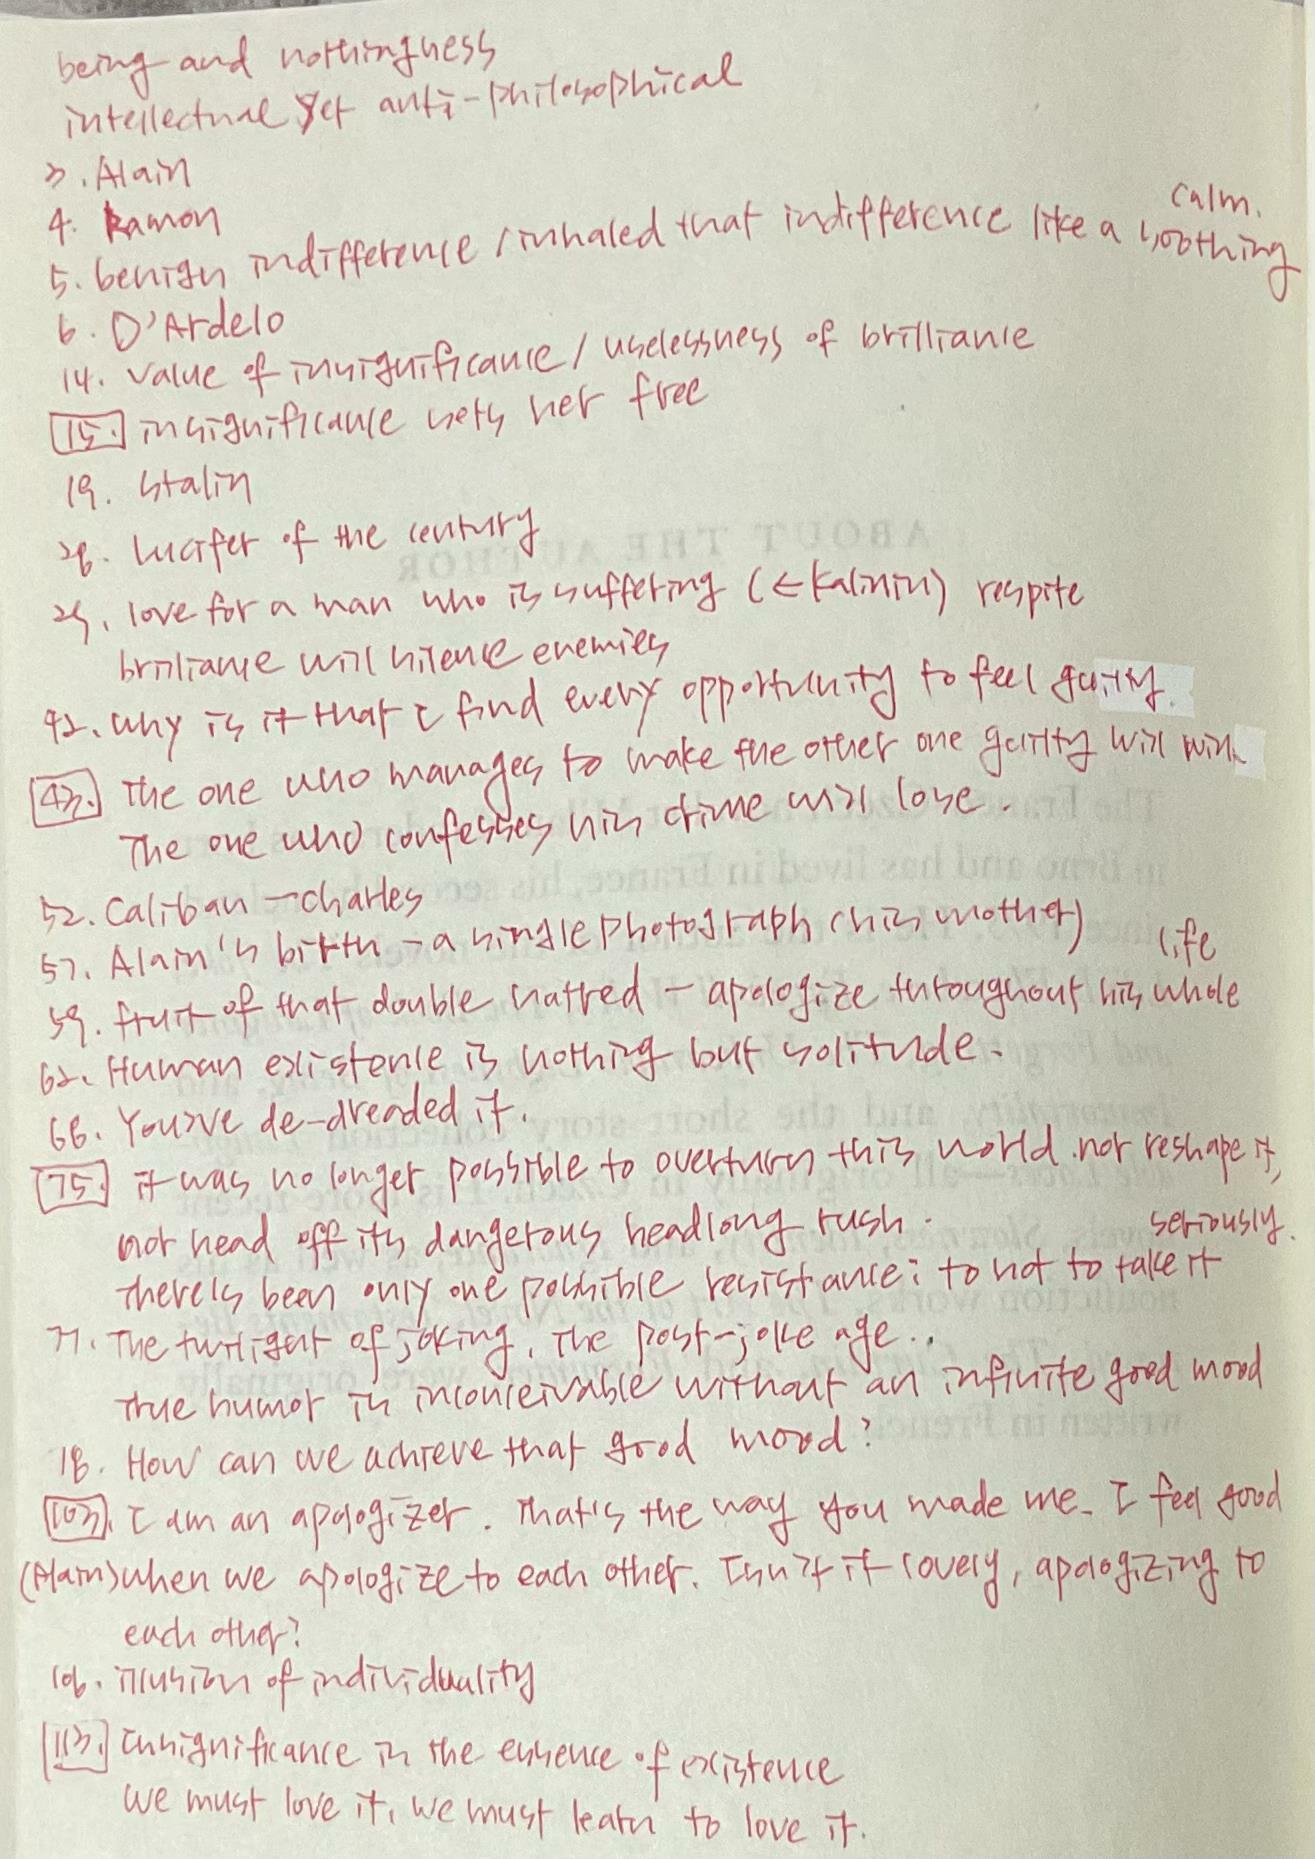 being and nothingness
intellectual yet anti-philosophical
3. Alain
4. Ramon
5. benign indifference / inhaled that indifference like a soothing calm.
6. D'Ardelo
14. value of insignificance / uselessness of brilliance
15. insignificance sets her free
19. Stalin
28. Lucifer of the century
29. love for a man who is suffering (← Kalinin) respite
brilliance will silence enemies
42. Why is it that I find every opportunity to feel guilty.
43. The one who manages to make the other one guilty will win.
The one who confesses his crime will lose.
52. Caliban - charles
57. Alain's birth - a single photograph (his mother)
59. fruit of that double hatred - apologize throughout his whole life
62. Human existence is nothing but solitude.
66. You've de-dreaded it.
75. it was no longer possible to overturn this world nor reshape it,
nor head off its dangerous headlong rush.
There's been only one possible resistance: to not to take it seriously.
77. The twilight of joking. The post-joke age..
True humor is inconceivable without an infinite good mood
78. How can we achieve that good mood?
103. I am an apologizer. That's the way you made me. I feel good
(Alain) when we apologize to each other. Isn't it lovely, apologizing to
each other?
106. illusion of individuality
113. Insignificance is the essence of existence
We must love it, we must learn to love it.
ABOUT THE AUTHOR